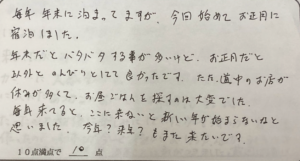 毎年 年末に泊まってますが、今回 始めて お正月に
宿泊しました。
年末だと バタバタする事が多いけど、お正月だと
以外と のんびりとしてて 良かったです。ただ、道中のお店が
休みが多くて、お昼ごはんを探すのは大変でした。
毎年 来てると、ここに来ないと 新しい年が始まらないなと
思いました。 今年?来年? も また 来たいです。
10点満点で 10 点